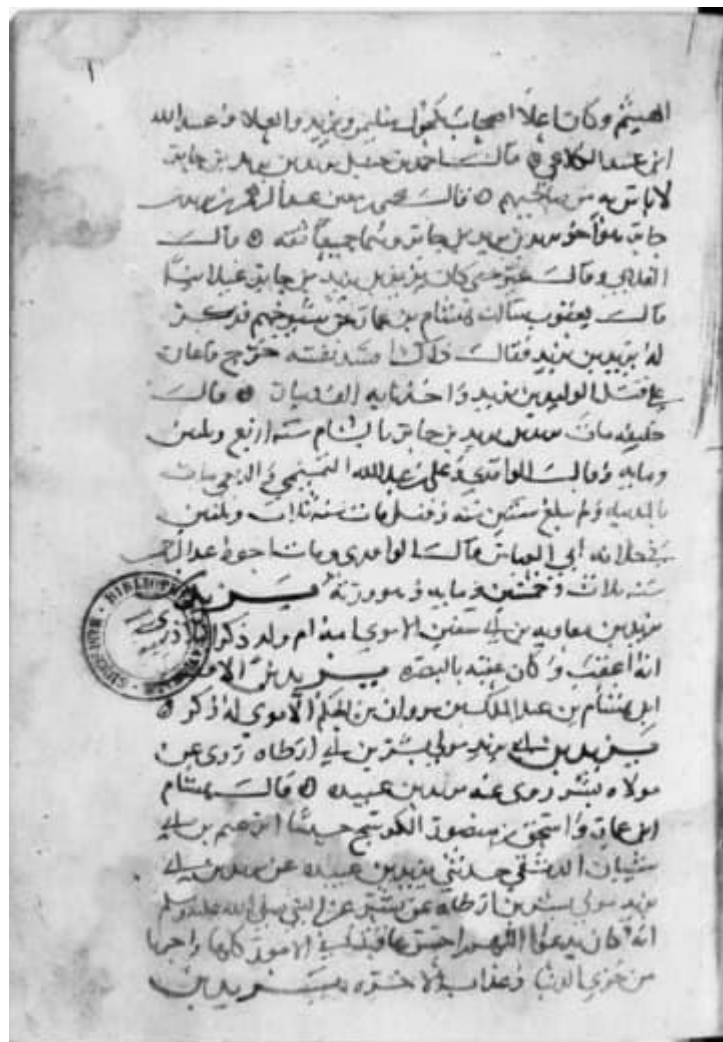 الهيثم وكان اعلا اصحاب مكحول سليمن ويزيد والعلا وعبد الله
ابن عبيد الكلاعي قالـ احمد بن حنبل يزيد بن يزيد بن جابر
لا باس به من صالحيهم قالـ يحيى بن معين عبد الرحمن بن يزيد بن
جابر هو اخو يزيد بن يزيد بن جابر وهما جميعا ثقة قالـ
وقالـ كان يزيد بن يزيد بن جابر
قالـ يعقوب سالت هشام بن عمار عن شيوخهم فذكر
له يزيد بن يزيد فقالـ ذاك افسد نفسه خرج فاعان
على قتل الوليد بن يزيد واخذ مايه الف قالـ
خليفه مات يزيد بن يزيد بن جابر بالشام سنه اربع وثلثين
ومايه وقالـ الواقدي وعلي بن عبد الله التميمي مات
ولم يبلغ ستين سنه وقيل مات سنه ثلاث وثلثين
في خلافه ابي العباس قالـ الواقدي ومات اخوه عبد الرحمن
سنه ثلاث وخمسين ومايه يزيد بن
يزيد بن معاويه بن ابي سفين الاموي امه ام ولد ذكر البلاذري
انه اعقب وكان عقبه بالبصره يزيد بن
ابن هشام بن عبد الملك بن مروان بن الحكم الاموي له ذكر
يزيد بن ابي يزيد مولى بسر بن ابي ارطاه روى عن
مولاه بسر روى عنه يزيد بن عبيده قالـ هشام
ابن عمار واسحق بن منصور الكوسج حدثنا ابرهيم بن ابي
شيبان الدمشقي حدثني يزيد بن عبيده عن يزيد بن ابي
يزيد مولى بسر بن ارطاه عن بسر عن النبي صلى الله عليه وسلم
انه كان يدعو اللهم احسن عاقبتنا في الامور كلها واجرنا
من خزي الدنيا وعذاب الاخره يزيد بن